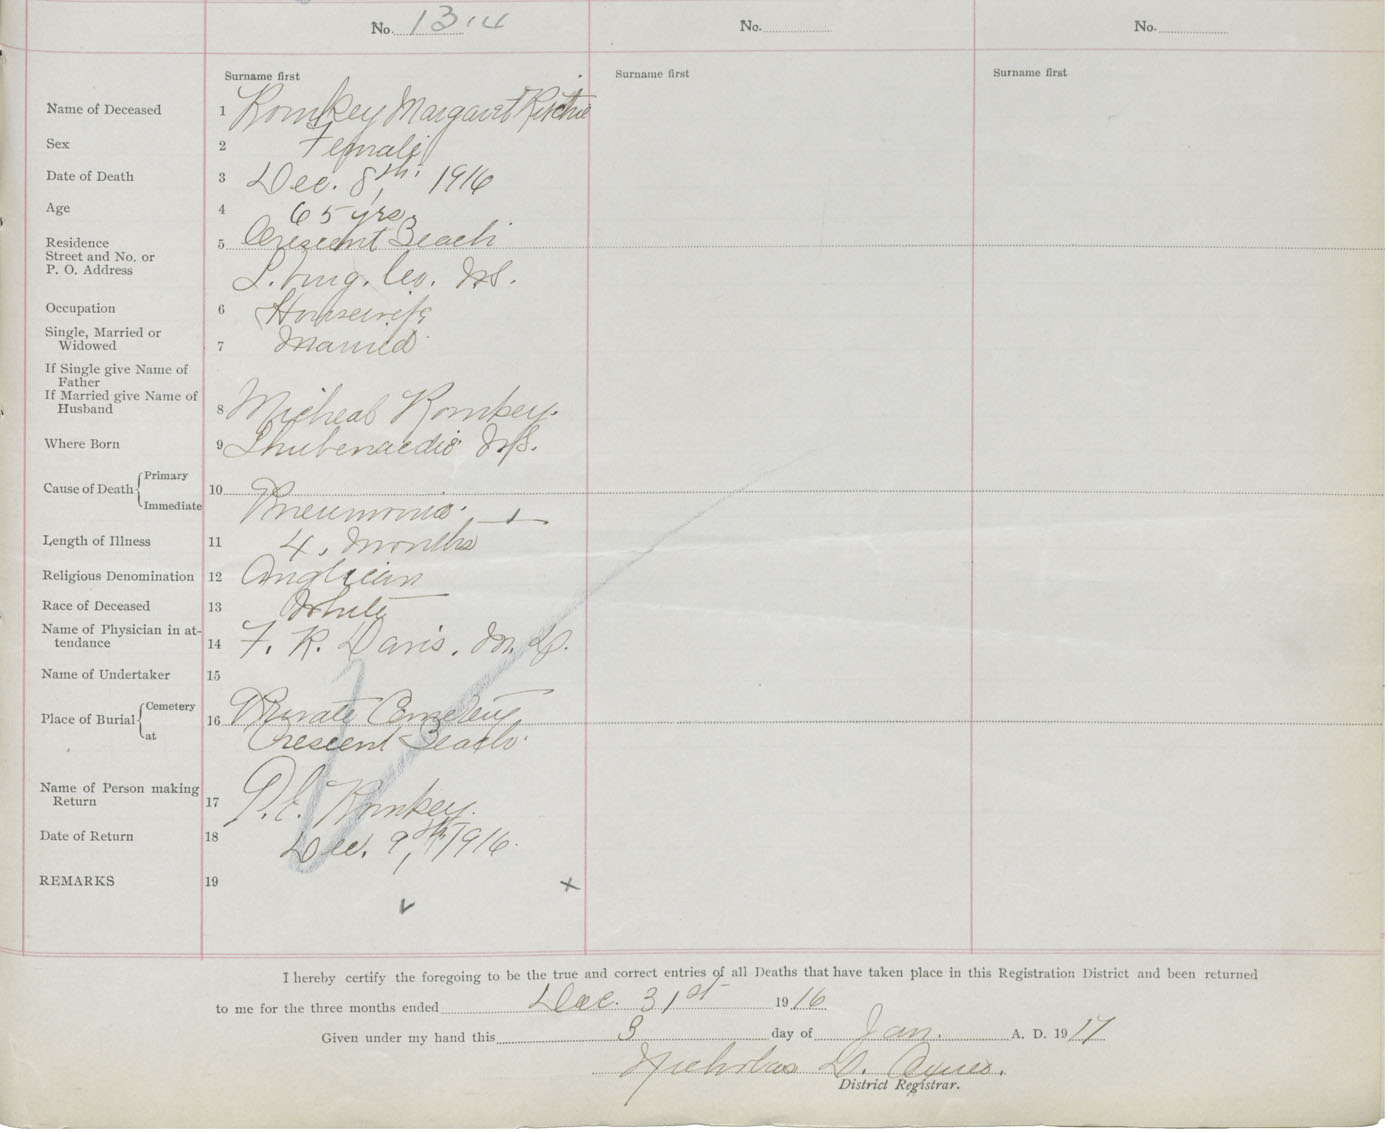 No. 1314 No. No.
Surname first Surname first Surname first
Name of Deceased 1 Romkey Margaret Ritchie
Sex 2 Female
Date of Death 3 Dec. 8th, 1916
Age 4 65 yrs.
Residence 5 Crescent Beach
Street and No. or
P. O. Address L. burg. Co. N.S.
Occupation 6 Housewife
Single, Married or
Widowed 7 Married
If Single give Name of
Father
If Married give Name of
Husband 8 Micheal Romkey.
Where Born 9 Shubenacdie N.S.
Cause of Death Primary
Immediate 10 Pneumonia.
Length of Illness 11 4, Months
Religious Denomination 12 Anglican
Race of Deceased 13 White
Name of Physician in at-
tendance 14 F. R. Davis. M. D.
Name of Undertaker 15
Place of Burial Cemetery
at 16 Private Cemetery
Crescent Beach.
Name of Person making
Return 17 P. E. Romkey.
Date of Return 18 Dec. 9th, 1916.
REMARKS 19 x
I hereby certify the foregoing to be the true and correct entries of all Deaths that have taken place in this Registration District and been returned
to me for the three months ended Dec. 31st 1916
Given under my hand this 3 day of Jan. A. D. 1917
Nicholas D.
District Registrar.